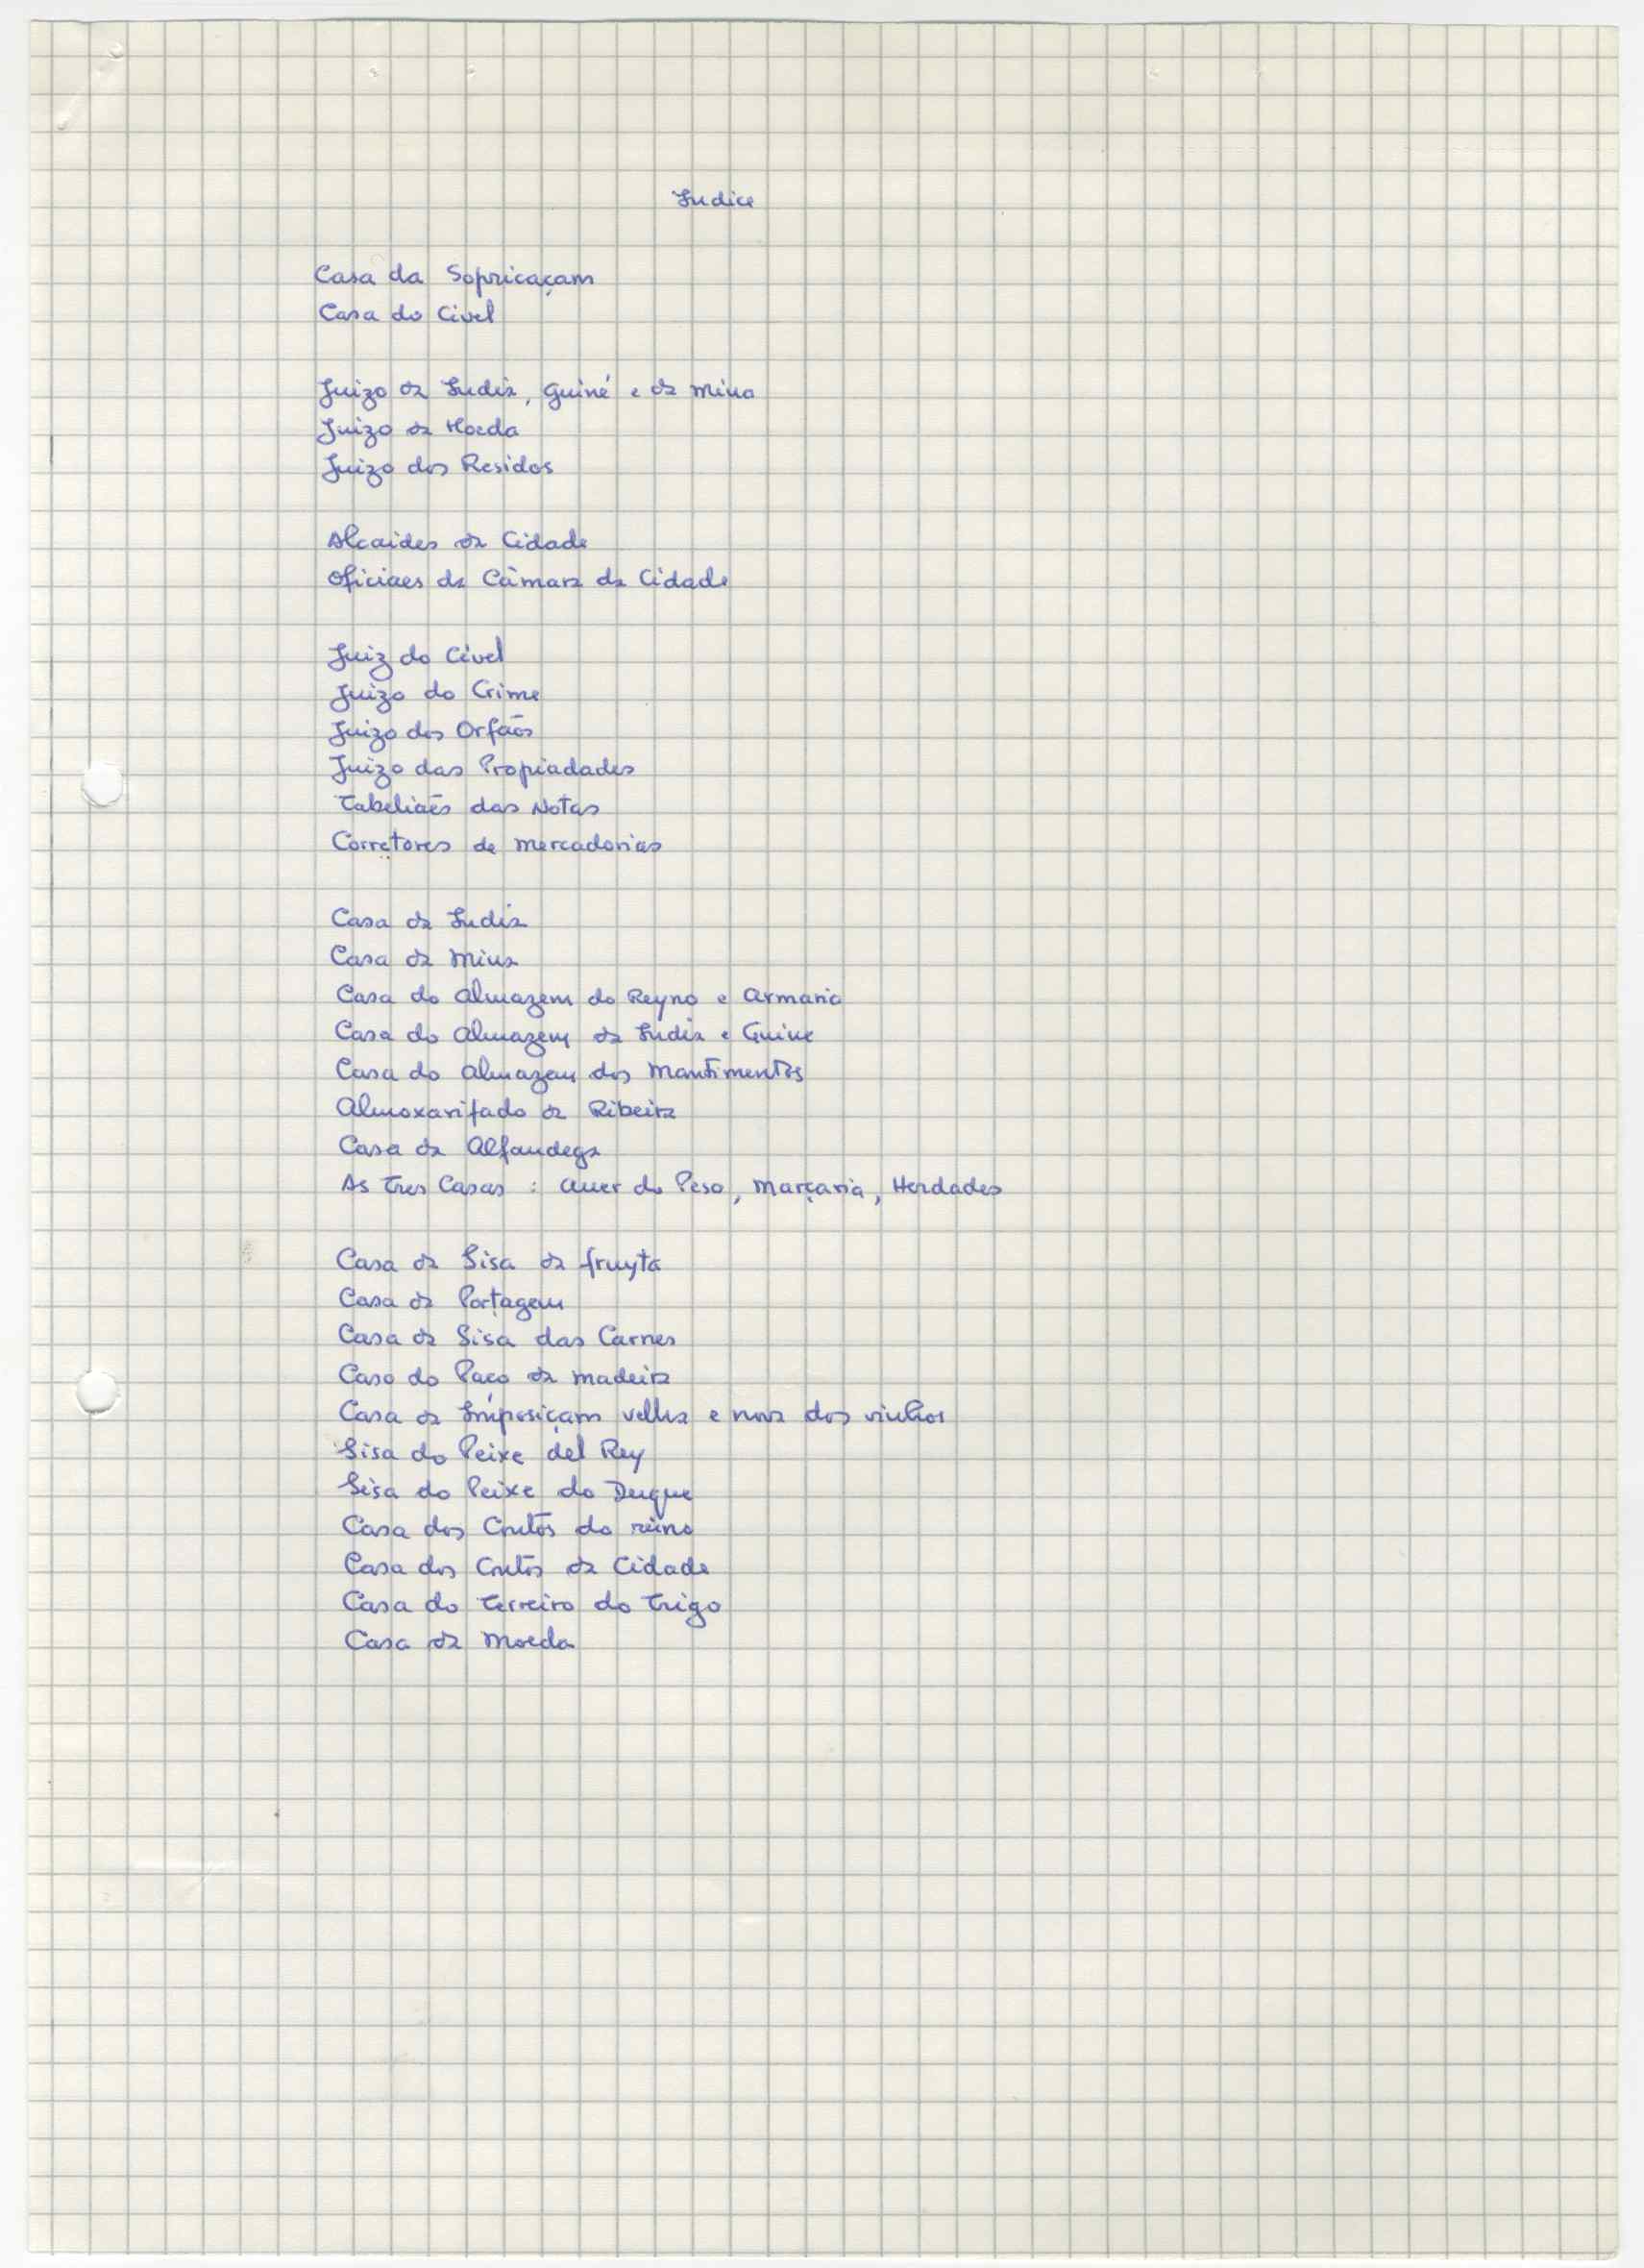 Indice
Casa da Sopricaçam
Casa do Civel
Juizo da India, Guiné e da Mina
Juizo da Moeda
Juizo dos Residos
Alcaides da Cidade
Oficiaes da Câmara da Cidade
Juiz do Civel
Juizo do Crime
Juizo dos Orfãos
Juizo das Propiadades
Tabeliães das Notas
Corretores de mercadorias
Casa da India
Casa da Mina
Casa do Almazem do Reyno e Armaria
Casa do Almazem da India e Guine
Casa do Almazem dos Mantimentos
Almoxarifado da Ribeira
Casa da Alfandega
As Tres Casas : Auer do Peso, Marçaria, Herdades
Casa da Sisa da fruyta
Casa da Portagem
Casa da Sisa das Carnes
Casa do Paço da madeira
Casa da Imposiçam velha e nova dos vinhos
Sisa do Peixe del Rey
Sisa do Peixe do Duque
Casa dos Contos do reino
Casa dos Contos da Cidade
Casa do Terreiro do Trigo
Casa da Moeda